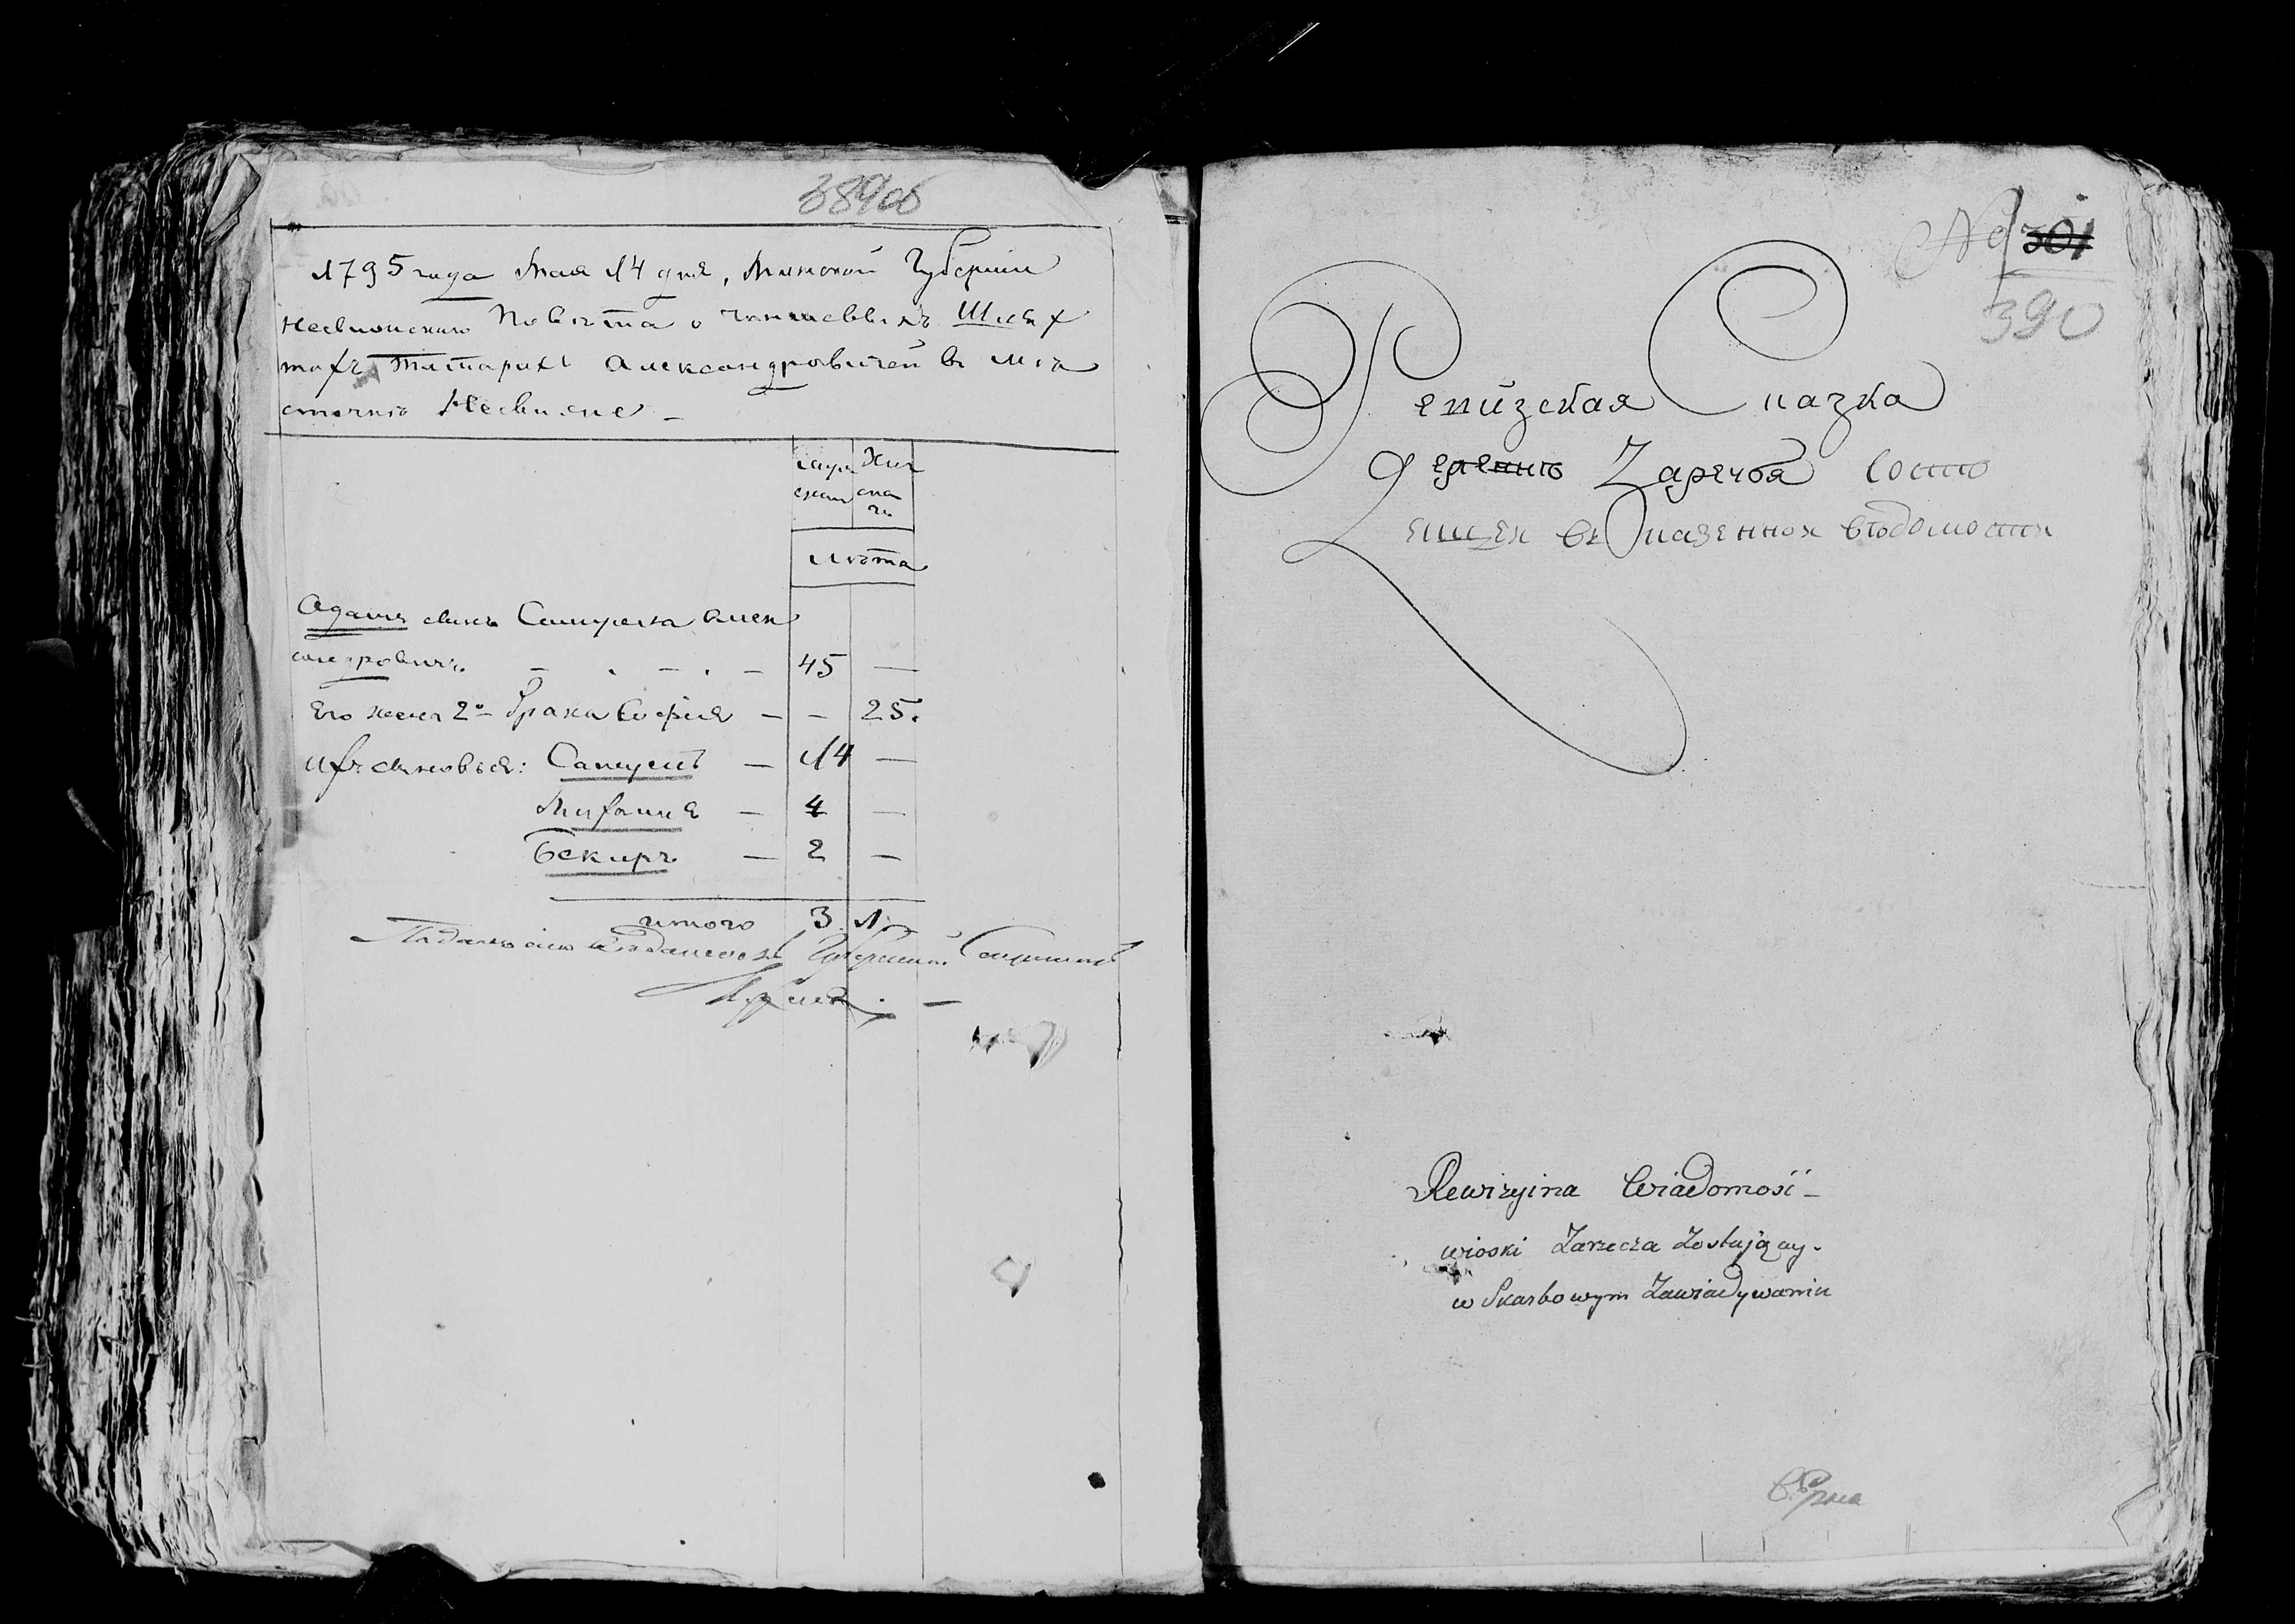 389об
1795 года Мая 14 дня, Минской Губернии
Несвижскаго Повѣта о чиншевыхъ Шлях
тахъ Татарахъ Александровичей въ мѣ
стечкѣ Несвиже –
муже
ска
Жен
ска
лѣта
Адамъ сынъ Самуеля Алек
сандровичъ – 45 —
Его жена 2о брака Софія — – 25.
ихъ сыновья: Самуель — 14 —
4 —
Бекиръ — 2 —
итого 3. 1.
No 301
390
Ревизская Сказка
Деревни Заречья состо
ещей въ казенной вѣдомости
Rewizyina Wiadomość –
wioski Zarzecza Zostającey.
w Skarbowym Zawiadywaniu